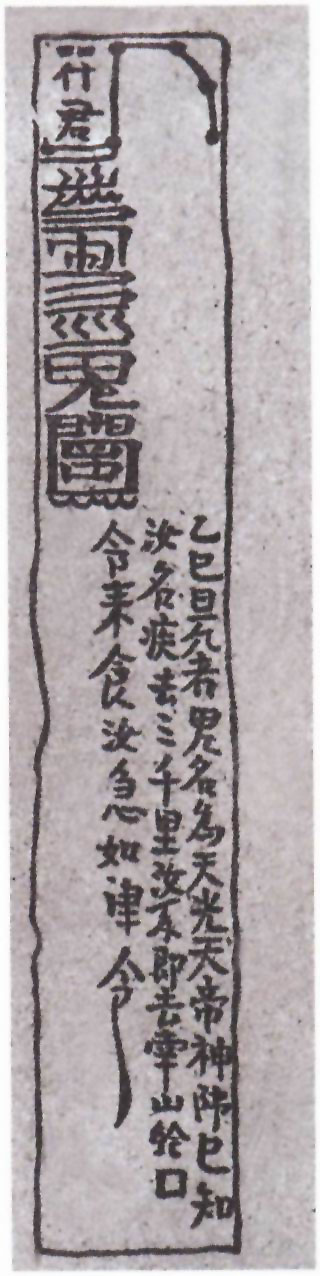 符君
乙巳日死者鬼名為天光天帝神師已知
汝名疾去三千里汝不即去南山給口
令來食汝急如律令